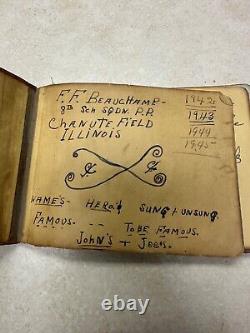 F.F. BEAUCHAMP -
8th SCH SQDN. P.P.
CHANUTE FIELD
ILLINOIS
1942
1943
1944
1945
NAME'S - HERO'S SUNG + UNSUNG
FAMOUS. -- TO BE FAMOUS.
JOHN'S + JOES.
© ebay.com